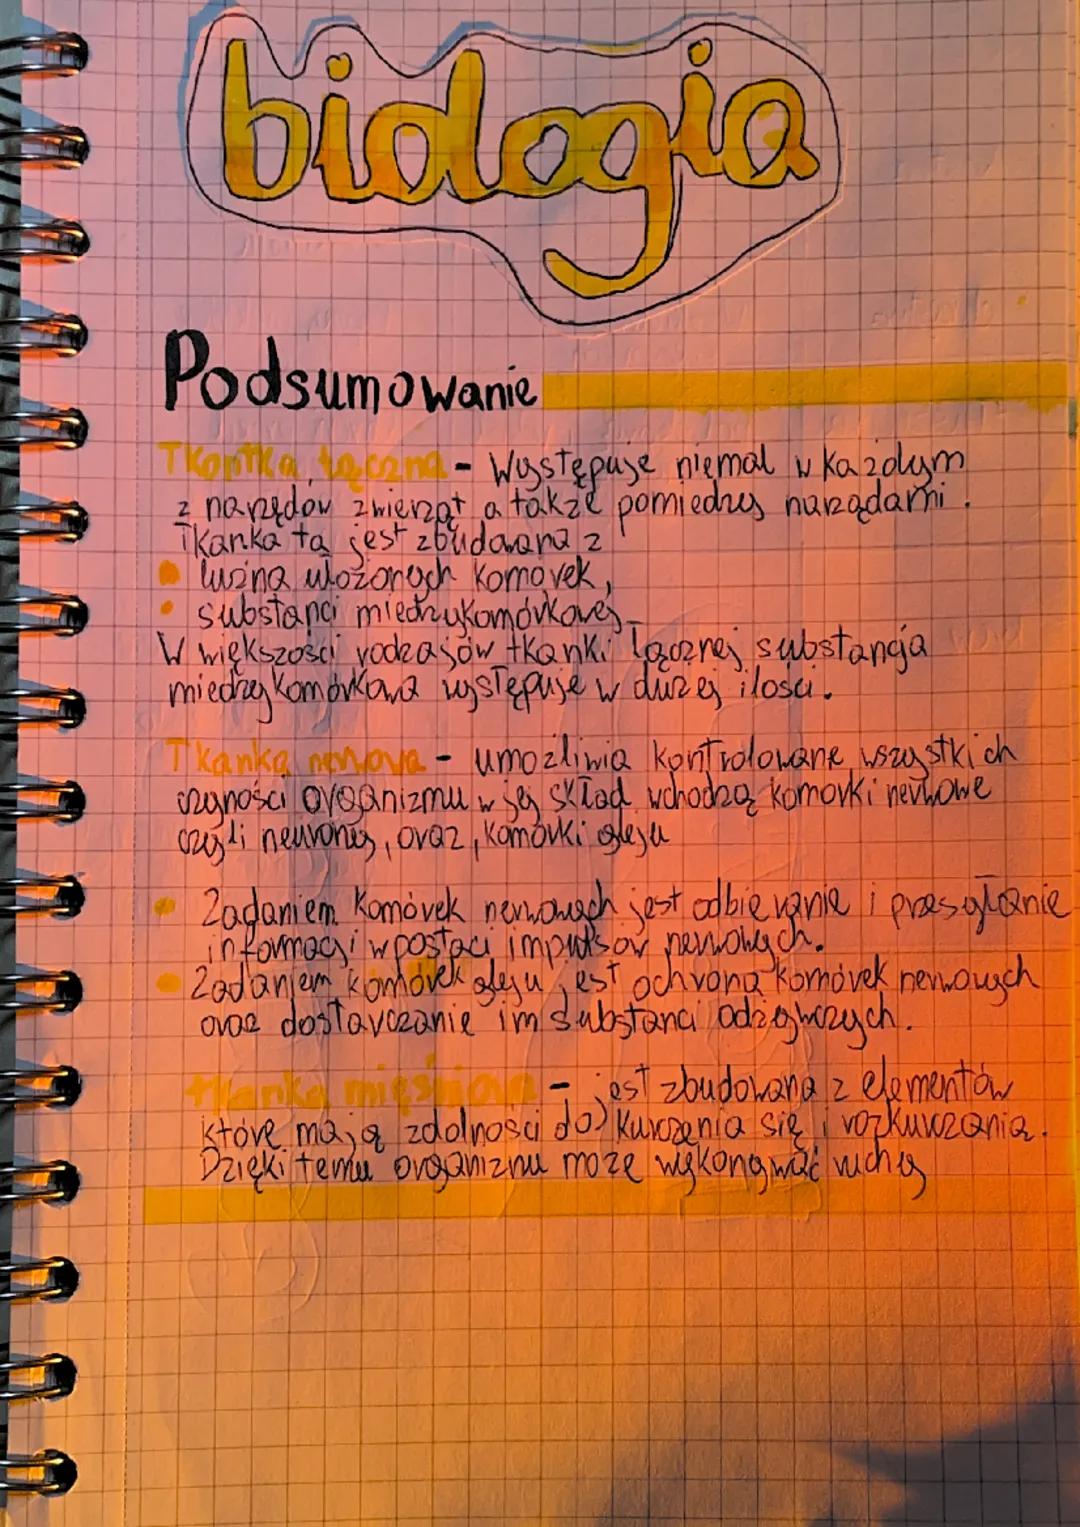 biologia
Podsumowanie
Tkanka łączna - Występuje niemal w każdym
z narzędów zwierząt a także pomiedzy narządami.
Tkanka ta jest zbudowana z
• luźna ułożonych komórek,
• substanci międzykomórkowej
W większości rodzajów tkanki łącznej substancja
międzykomórkowa występuje w dużej ilości.
Tkanka nerwowa - umożliwia kontrolowane wszystkich
czyności organizmu w jej skład wchodzą komorki nerwowe
czyli neurony, oraz, komórki gleju
• Zadaniem komórek nerwowych jest odbieranie i przesyłanie
informacji w postaci impulsów nerwowych.
• Zadaniem komórek gleju jest ochrona komórek nerwowych
oraz dostarczanie im substanci odżywczych.
tkanka mięśniowa - jest zbudowana z elementów
które mają zdolności do kurczenia się i rozkurczania.
Dzięki temu organizmu może wykonywać ruchy